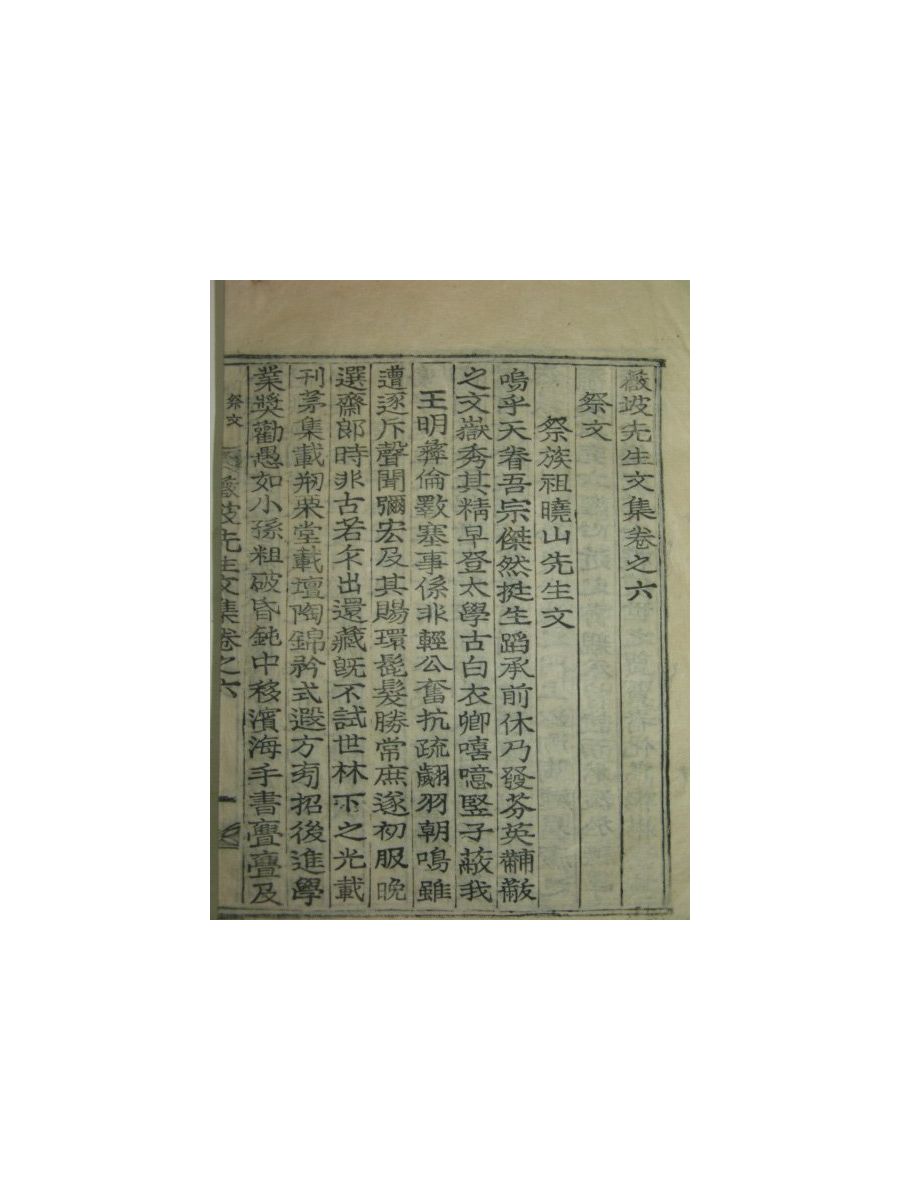 薇坡先生文集卷之六
祭文
祭族祖曉山先生文
嗚乎天眷吾宗傑然挺生蹈承前休乃發芬英黼黻
之文嶽秀其精早登太學古白衣卿嘻噫竪子蔽我
王明彛倫斁塞事係非輕公奮抗疏翽羽朝鳴雖
遭逐斥聲聞彌宏及其賜環髭髮勝常庶遂初服晩
選齋郞時非古若乍出還藏旣不試世林下之光載
刊茅集載刱榮堂載壇陶錦矜式遐方旁招後進學
業奬勸愚如小孫粗破昏鈍中移濱海手書亹亹及
祭文
薇坡先生文集卷之六
一